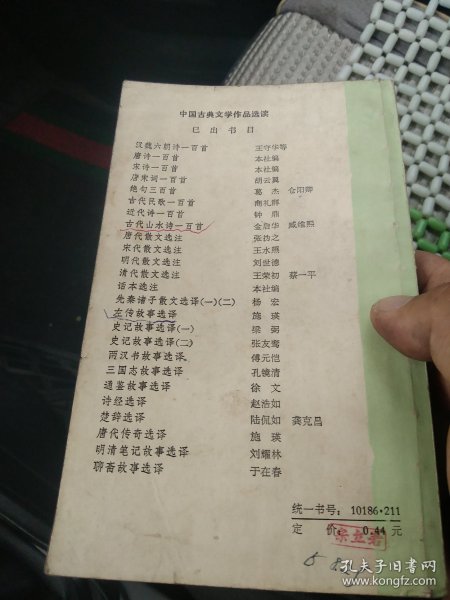 中国古典文学作品选读
已出书目
汉魏六朝诗一百首 王守华等
唐诗一百首 本社编
宋诗一百首 本社编
唐宋词一百首 胡云翼
绝句三百首 葛杰 仓阳卿
古代民歌一百首 商礼群
近代诗一百首 钟鼎
古代山水诗一百首 金启华 臧维熙
唐代散文选注 张㧑之
宋代散文选注 王水照
明代散文选注 刘世德
清代散文选注 王荣初 蔡一平
话本选注 本社编
先秦诸子散文选译(一)(二) 杨宏
左传故事选译 施瑛
史记故事选译(一) 梁弼
史记故事选译(二) 张友鸾
两汉书故事选译 傅元恺
三国志故事选译 孔镜清
通鉴故事选译 徐文
诗经选译 赵浩如
楚辞选译 陆侃如 龚克昌
唐代传奇选译 施瑛
明清笔记故事选译 刘耀林
聊斋故事选译 于在春
统一书号：10186·211
定价：0.44元
孔夫子旧书网
kongfz.com